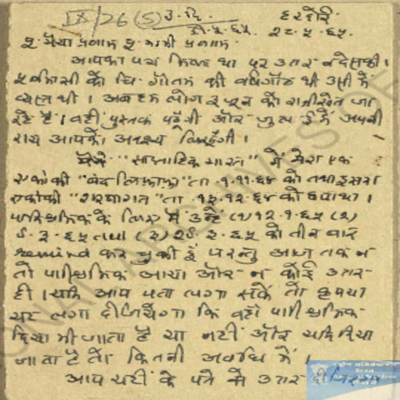 IX/26 (5) उ. दि. हरदोई
२८.५.६५
पू. भैया प्रणाम पू. भाभी प्रणाम
आपका पत्र मिला था पर उत्तर न दे सकी।
की वर्षगाँठ थी उसी में
व्यस्त थी। अब हम लोग को रानीखेत जा
रहे हैं। वहीं पुस्तक पढ़ूँगी और अपनी
राय आपको अवश्य लिखूँगी।
मैंने "साप्ताहिक भारत" में मेरा एक
एकांकी "बंद लिफाफा" ता. १.११.६४ को तथा दूसरा
एकांकी "शरणागत" ता. १३.१२.६४ को छपा था।
पारिश्रमिक के लिए मैं उन्हें (१) १२.१.६५ (२)
८.३.६५ तथा (३) २८.३.६५ को तीन बार
कर चुकी हूँ परन्तु आज तक न
तो पारिश्रमिक आया और न कोई उत्तर
ही। यदि आप पता लगा सकें तो कृपया
पता लगा दीजियेगा कि वहाँ पारिश्रमिक
दिया भी जाता है या नहीं और यदि दिया
जाता है तो कितनी अवधि में।
आप यहीं के पते से उत्तर दीजिएगा